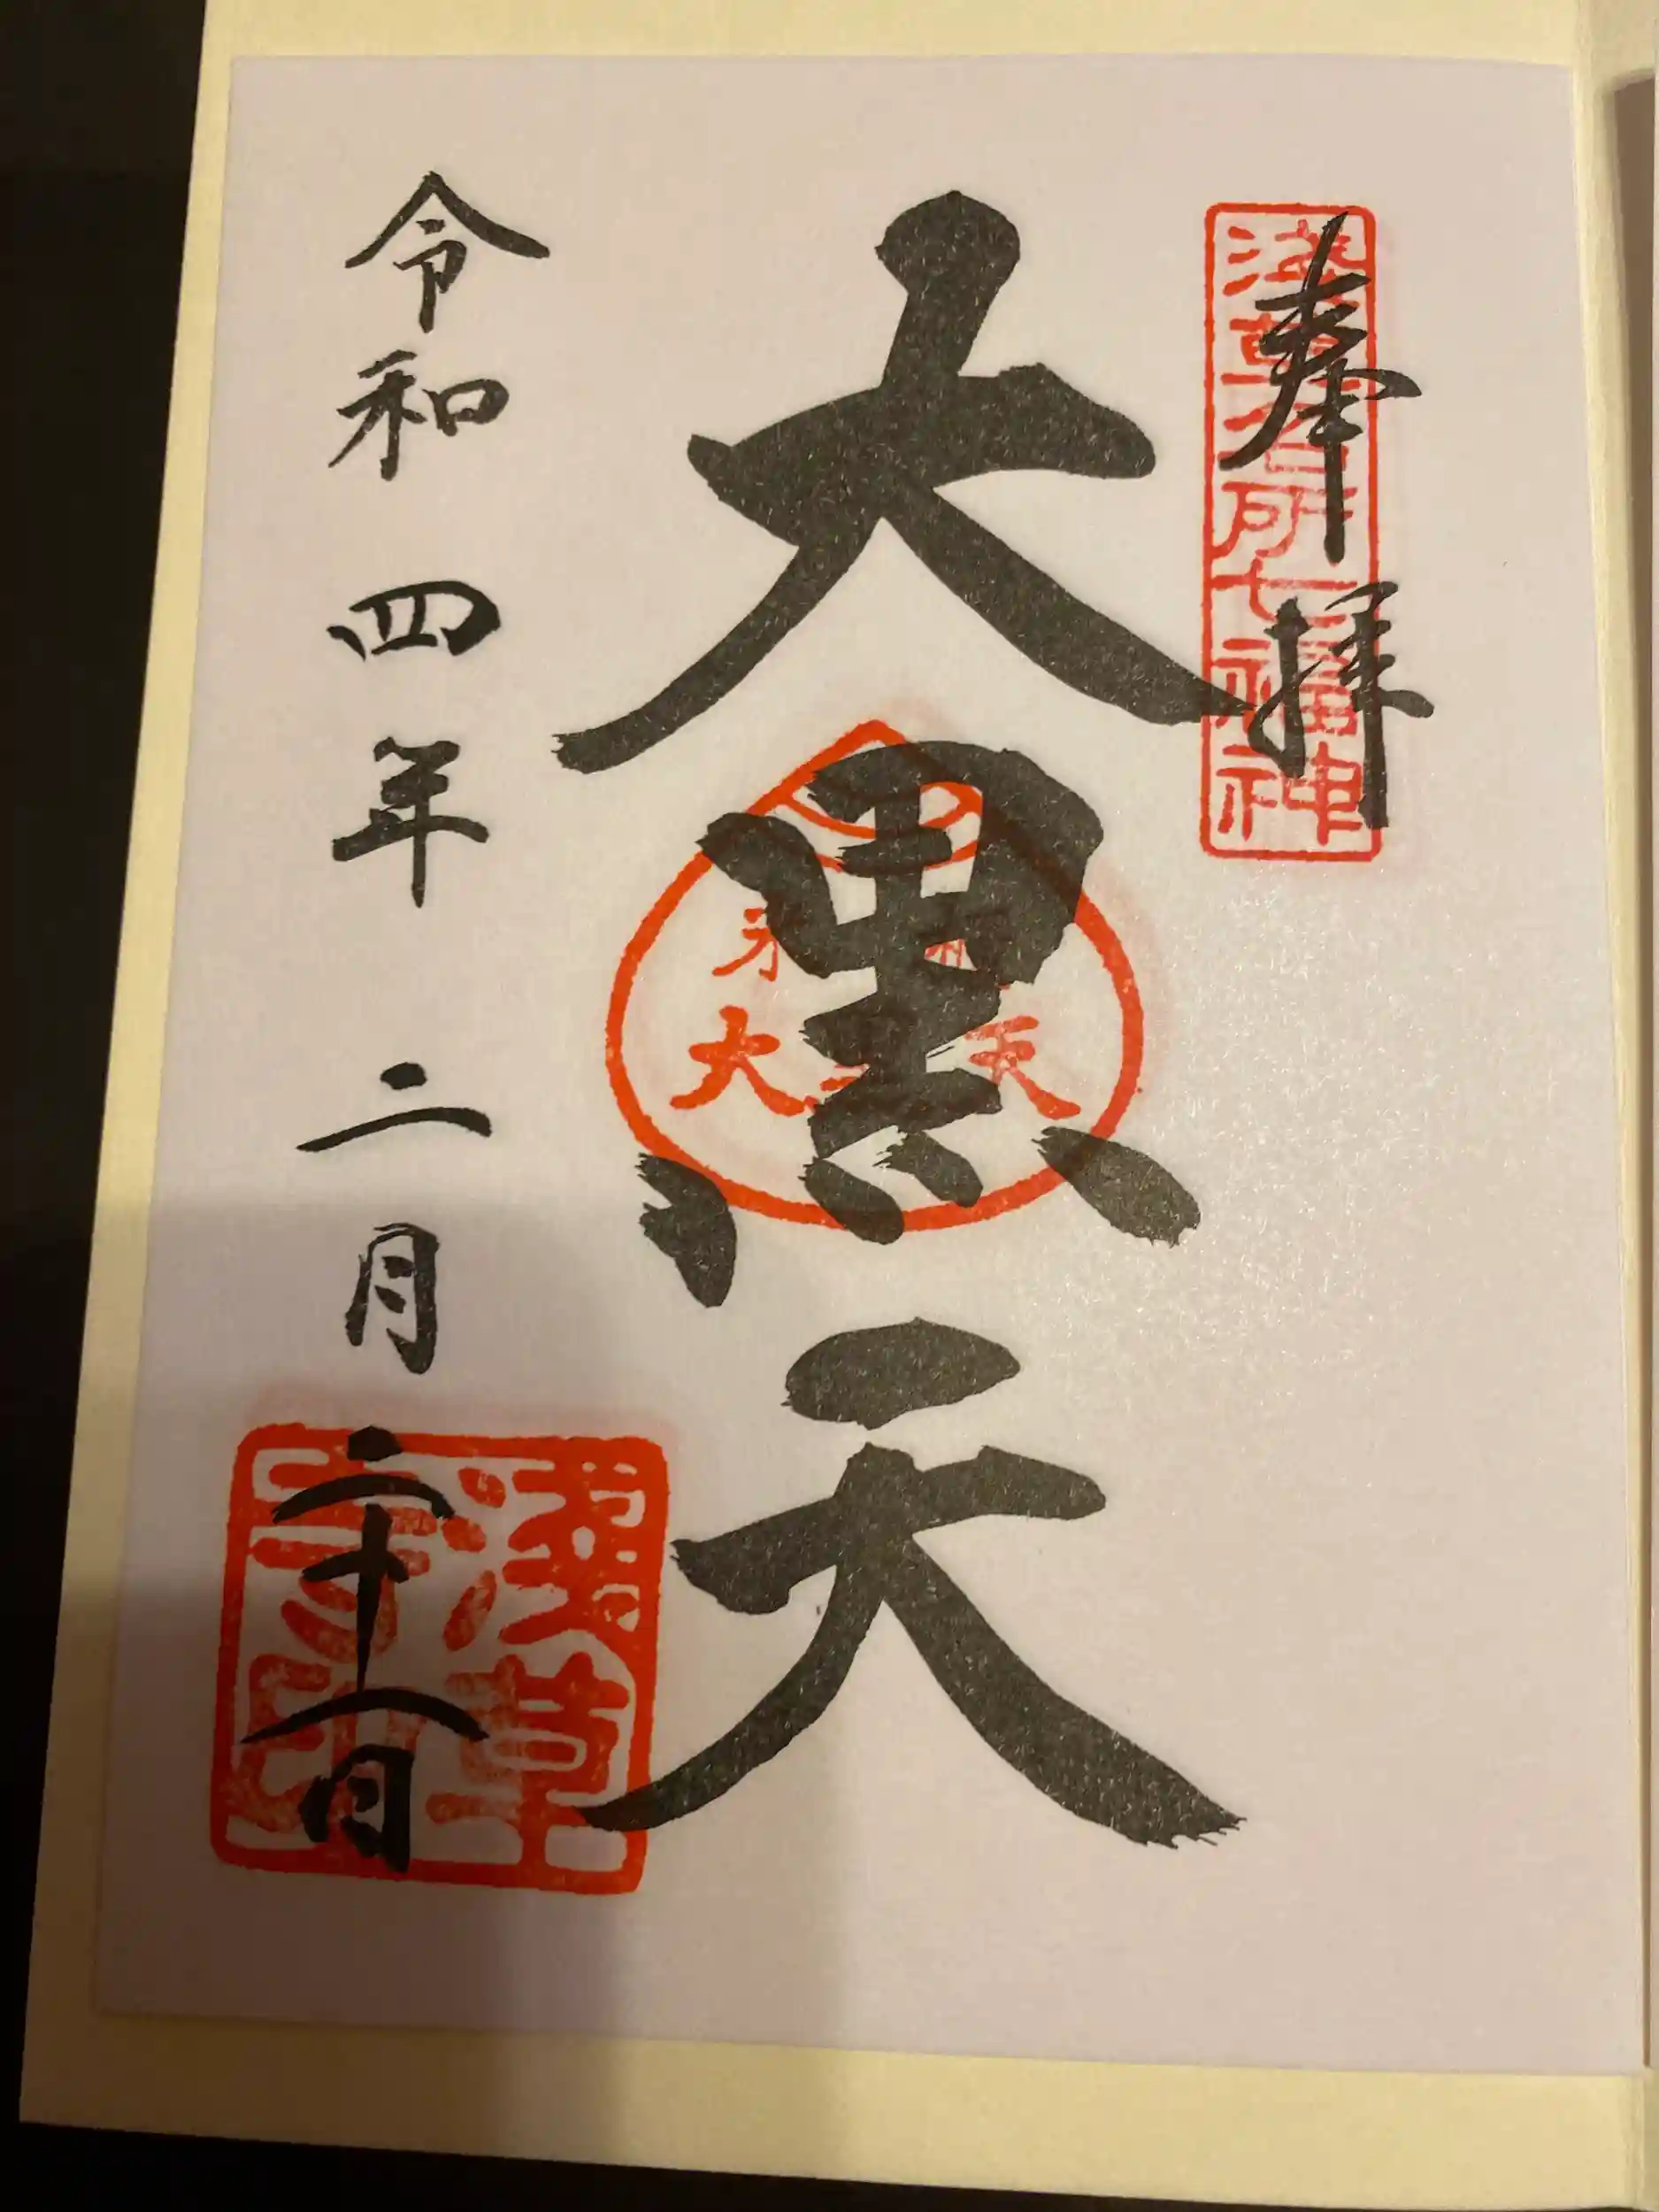 奉拝
淺草名所七福神
大黒天
大 天
令和四年二月二十一日
淺草寺印